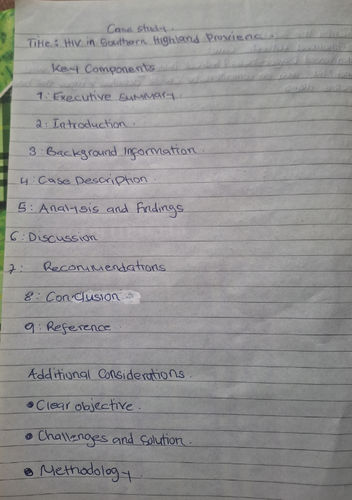 Case study.
Title: HIV in Southern Highland Provienc.
Key Components
1: Executive summary.
2: Introduction.
3: Background Information.
4: Case Description.
5: Analysis and Findings
6: Discussion
7: Recommendations
8: Conclusion.
9: Reference.
Additional Considerations.
• Clear objective.
• Challenges and Solution.
• Methodology